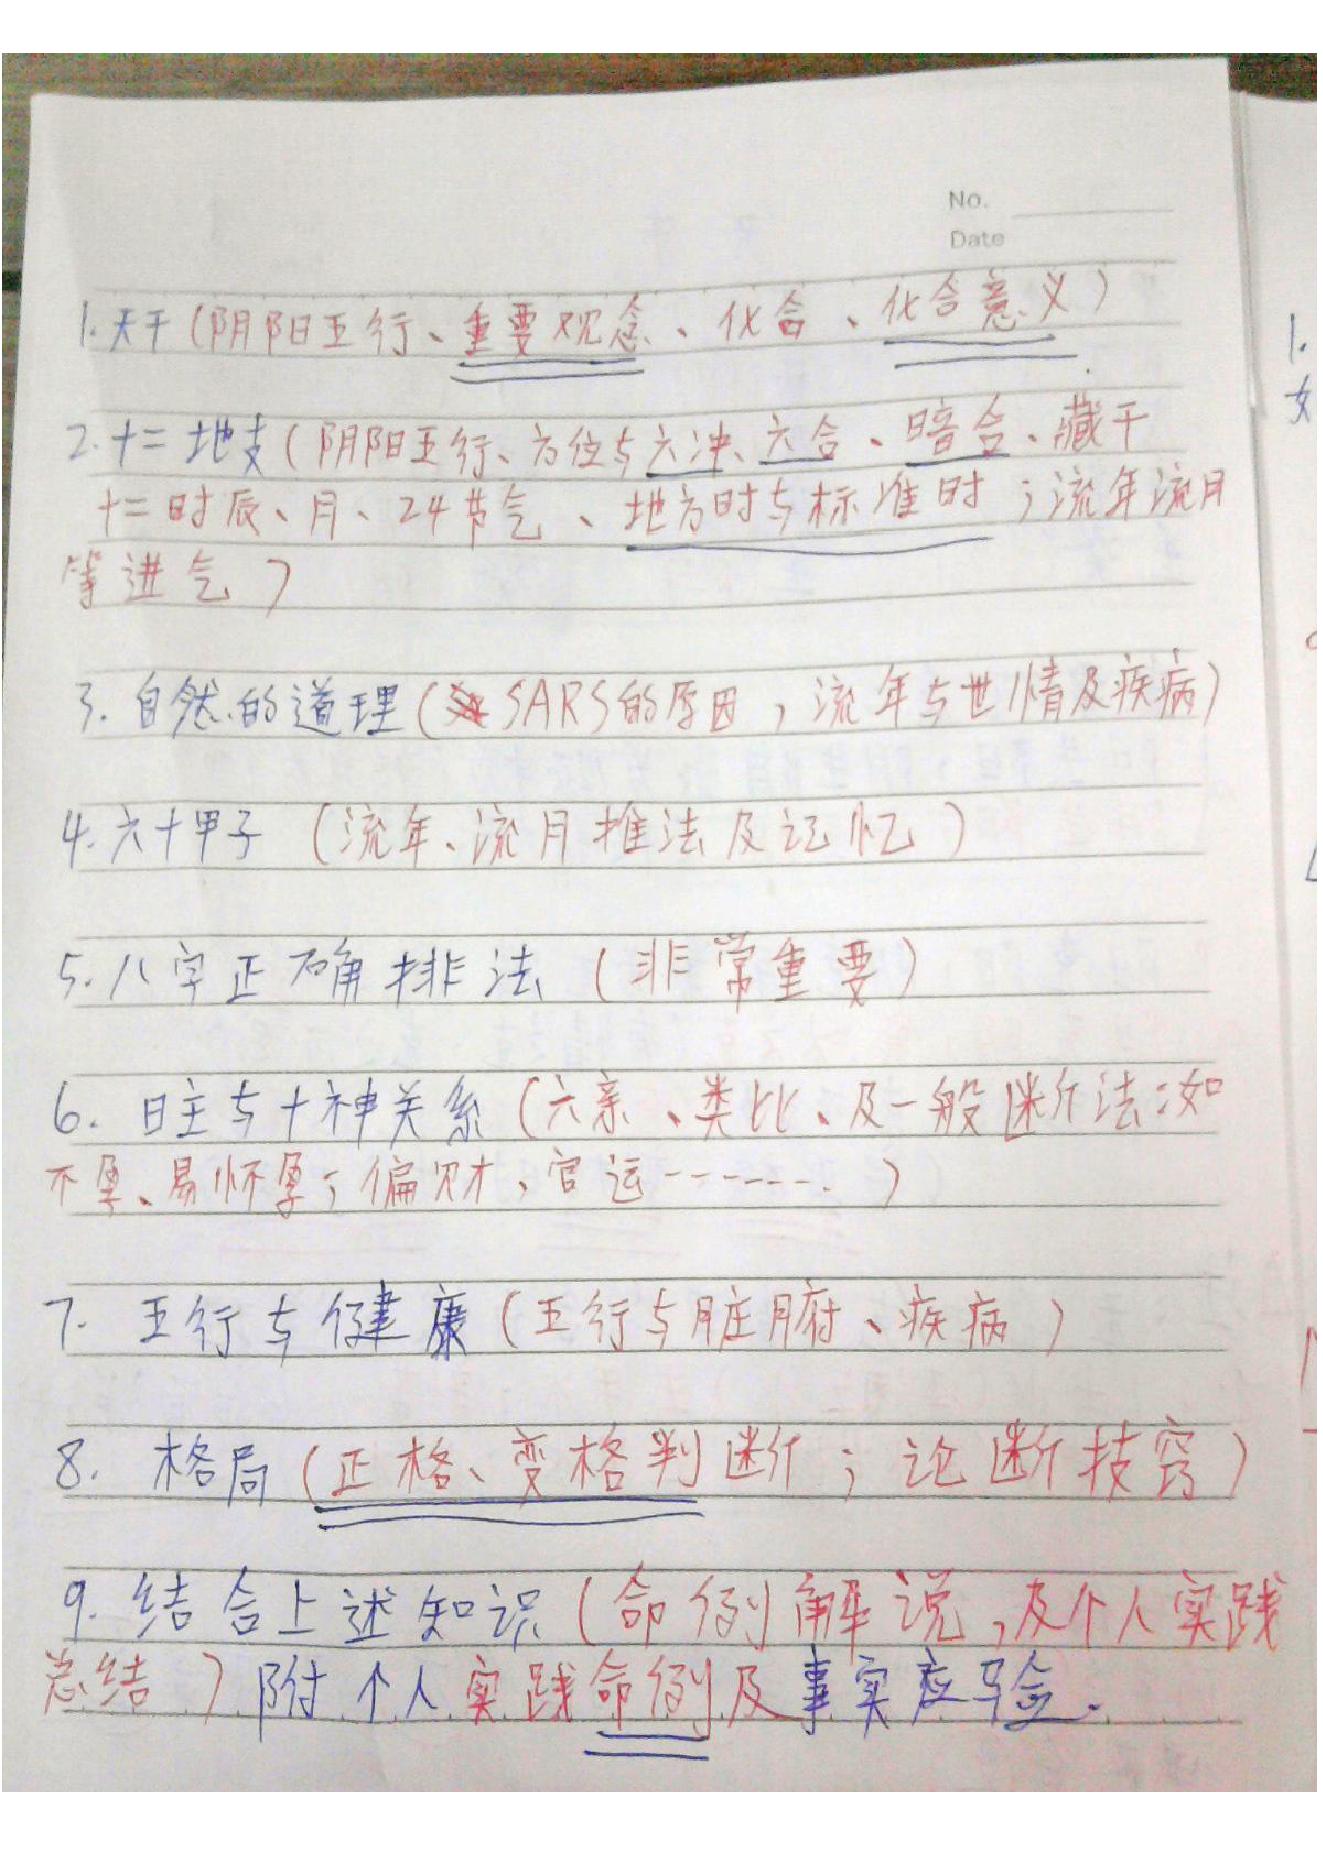 No.
Date
1.天干(阴阳五行、重要观念、化合、化合意义)
2.十二地支(阴阳五行、方位与六冲、六合、暗合、藏干
十二时辰、月、24节气、地方时与标准时;流年流月
等进气)
3.自然的道理(SARS的原因,流年与世情及疾病)
4.六十甲子(流年、流月推法及记忆)
5.八字正确排法(非常重要)
6.日主与十神关系(六亲、类比、及一般断法:如
不孕、易怀孕;偏财,官运-------.)
7.五行与健康(五行与脏腑、疾病)
8.格局(正格、变格判断;论断技窍)
9.结合上述知识(命例解说,及个人实践
总结)附个人实践命例及事实应验.
1.
女